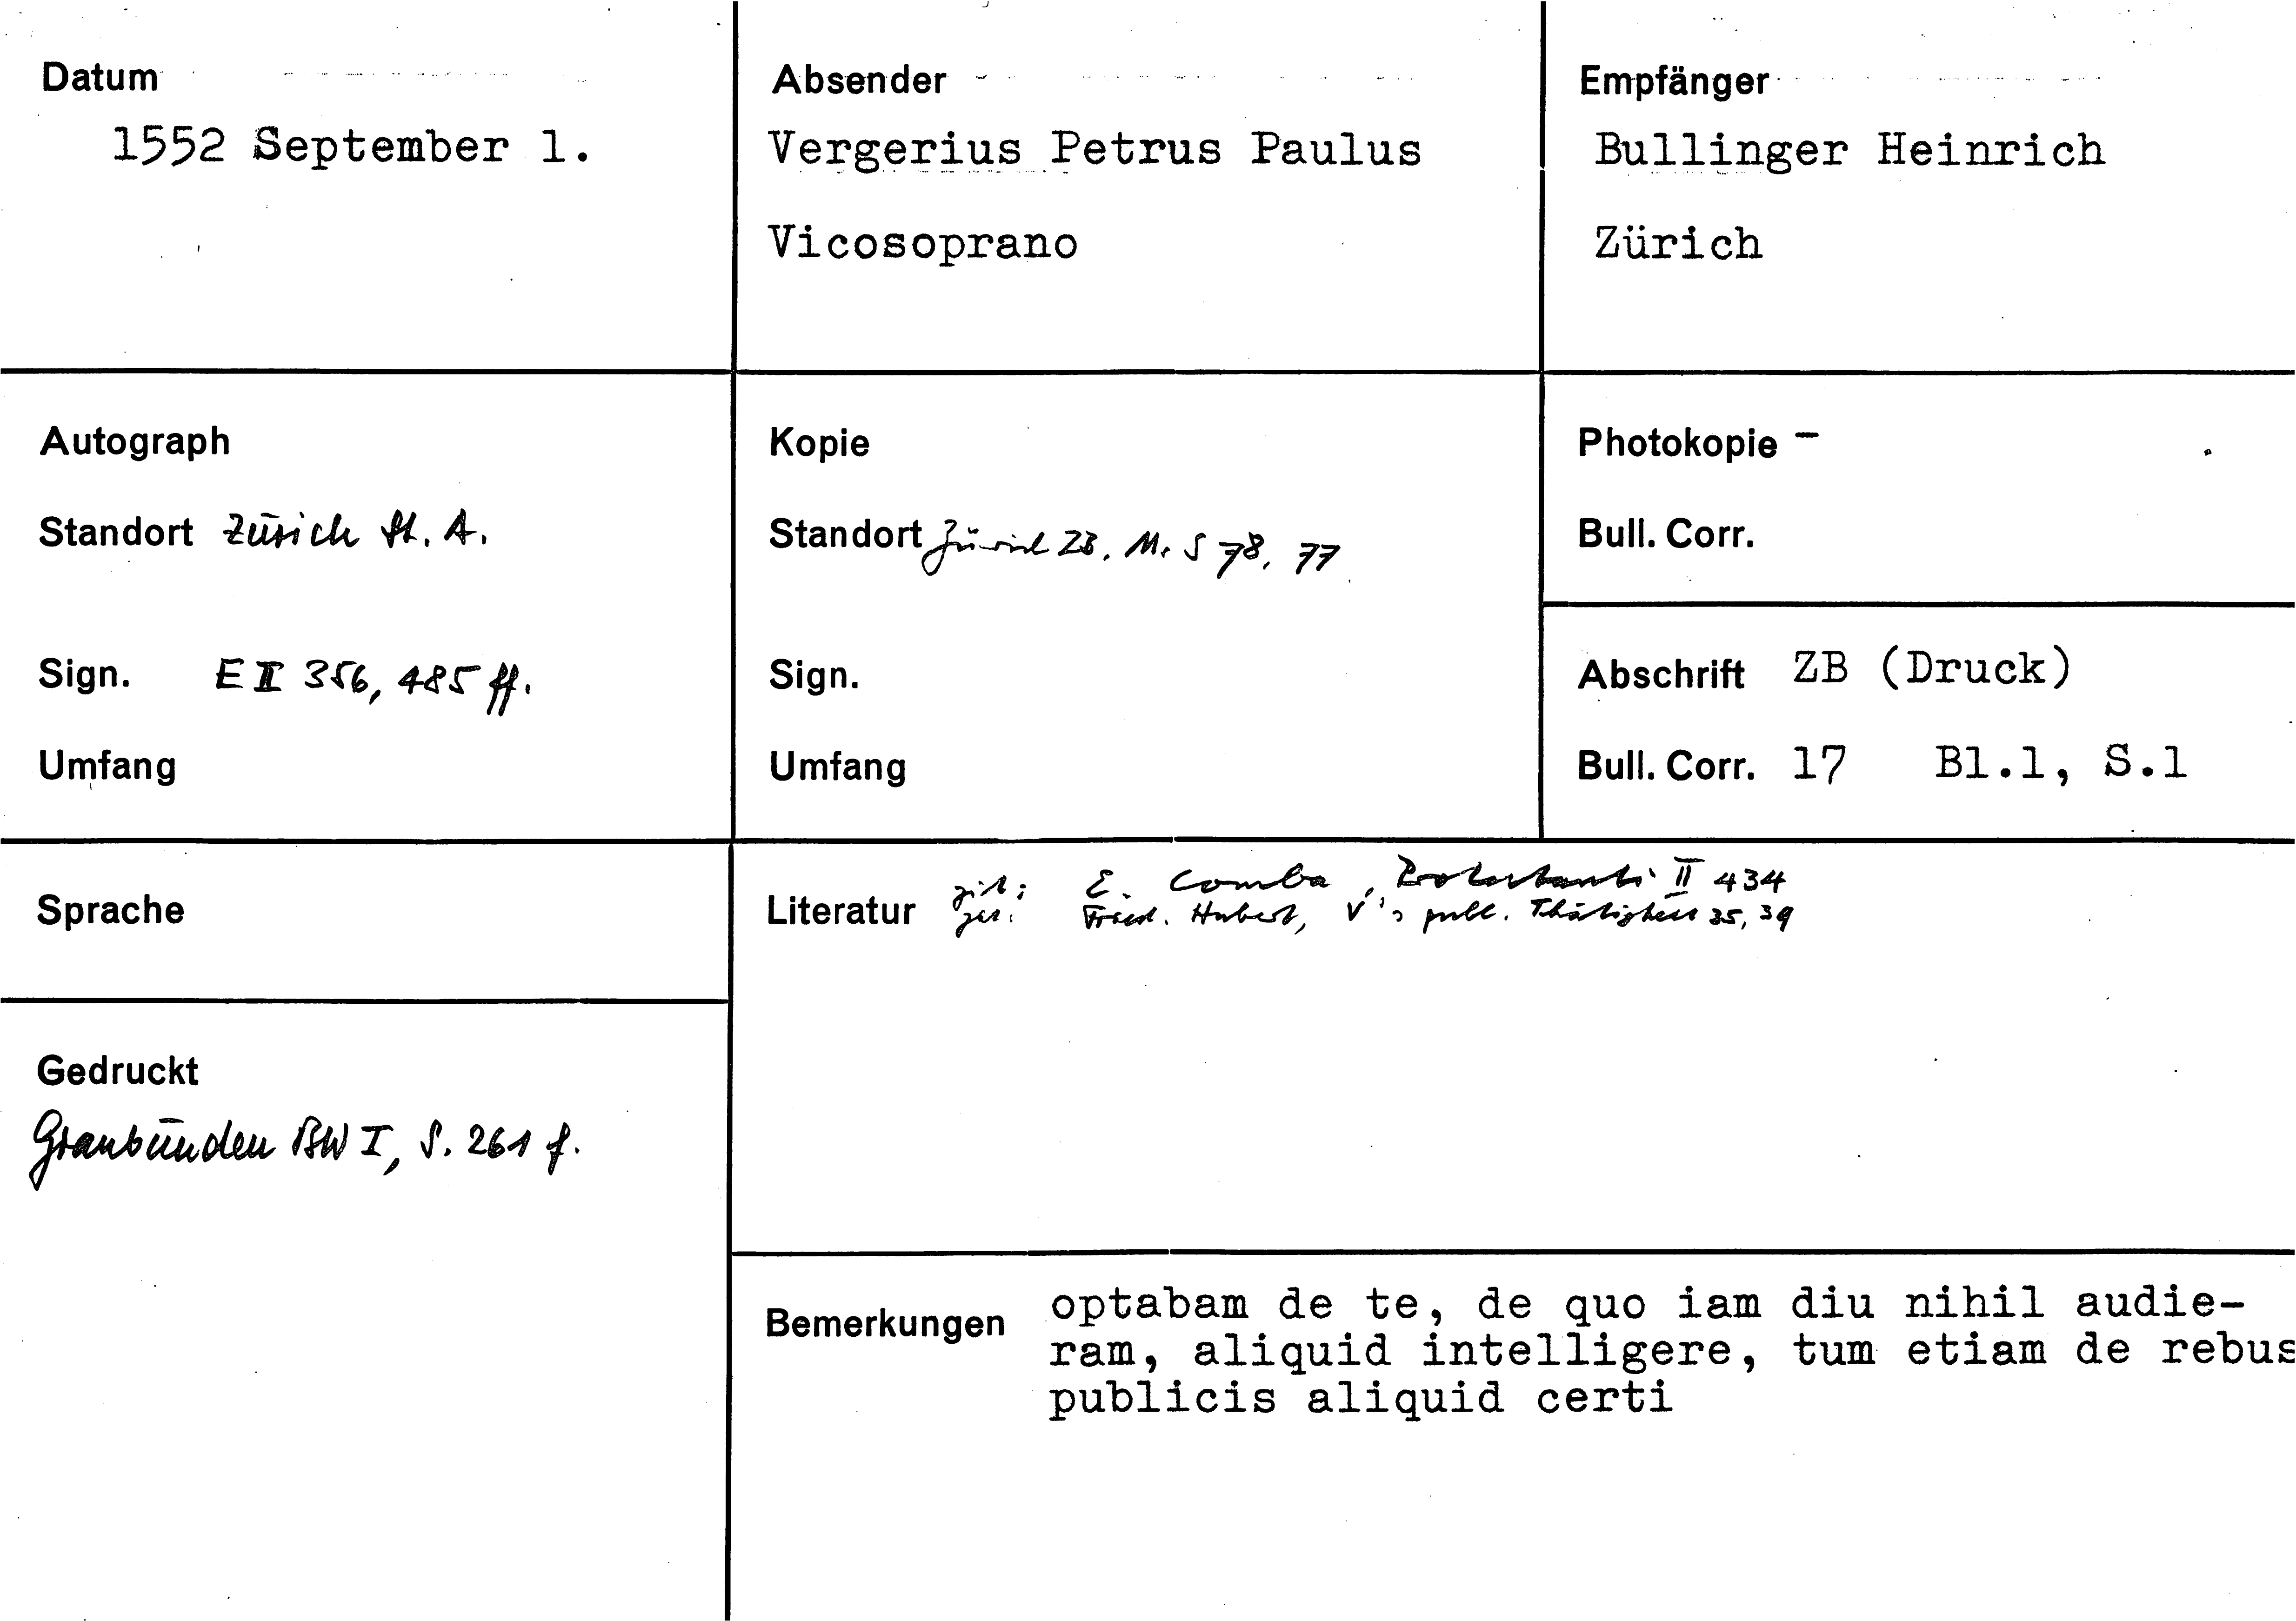 Datum
1552 September 1.
Absender
Vergerius Petrus Paulus
Vicosoprano
Empfänger
Bullinger Heinrich
Zürich
Autograph
Standort Zürich St. A.
Sign. E II 356, 485 ff.
Umfang
Kopie
Standort Zürich ZB. Ms S 78, 77
Sign.
Umfang
Photokopie –
Bull. Corr.
Abschrift ZB (Druck)
Bull. Corr. 17 Bl.1, S.1
Sprache
Gedruckt
Graubünden BW I, S. 261 f.
Literatur
zit: E. Comba, Protestanti II 434
Fried. Hubert, V's publ. Thätigkeit 35, 39
Bemerkungen
optabam de te, de quo iam diu nihil audie-
ram, aliquid intelligere, tum etiam de rebus
publicis aliquid certi